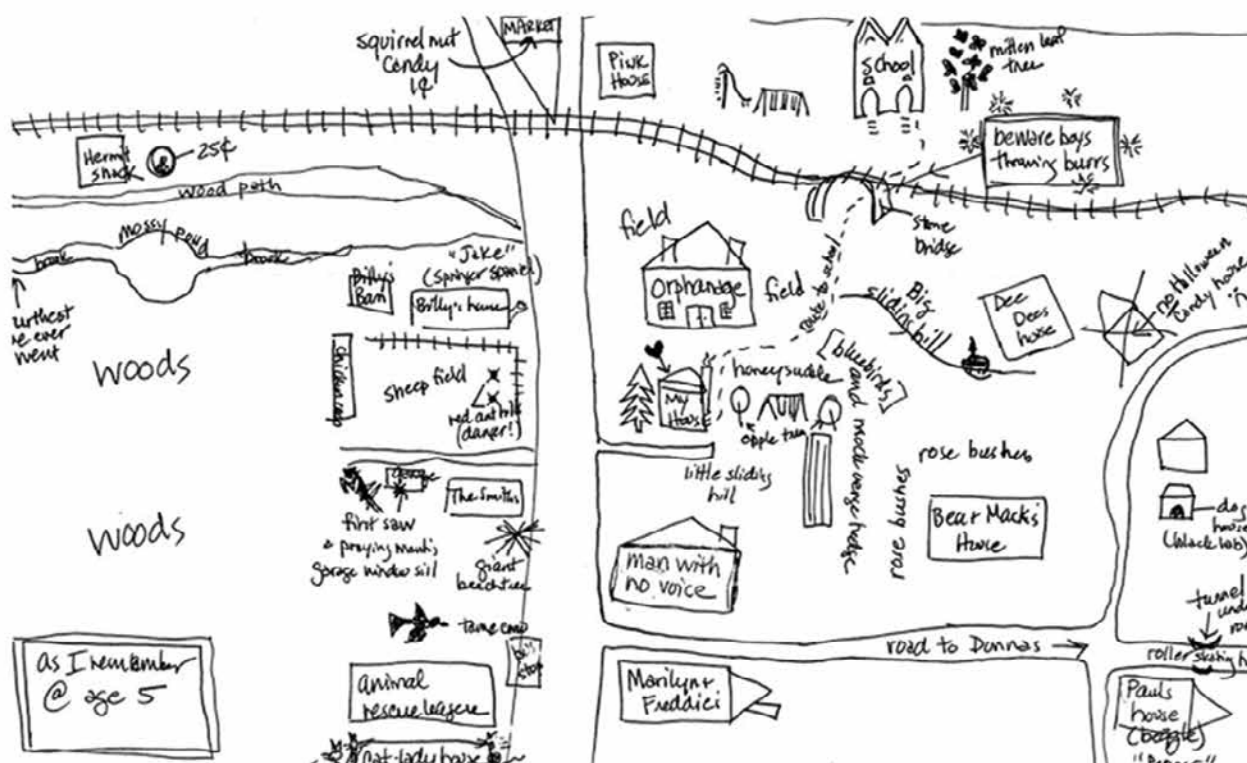 squirrel nut
Candy
1¢
MARKET
Pink
House
school
mitten leaf
tree
beware boys
throwing burrs
Hermit
shack
25¢
wood path
mossy pond
brook
brook
furthest
we ever
went
woods
woods
"Jake"
(springer spaniel)
Billy's
Barn
Billy's house
chicken coop
sheep field
red ant hills
(danger!)
garage
The Smiths
first saw
a praying mantis
garage window sill
giant
beech tree
tame crow
bus
stop
animal
rescue league
cat-lady house
as I remember
@ age 5
field
Orphanage
field
route to school
stone
bridge
Big
sliding hill
Dee
Dees
house
no halloween
candy house
My
House
honeysuckle
[bluebirds]
and mock orange hedge
apple tree
little sliding
hill
rose bushes
rose bushes
Bea & Mack's
House
man with
no voice
Marilyn &
Freddies
road to Donnas →
dog
house
(black lab)
tunnel
under
roller skating
Pauls
house
(beagle)